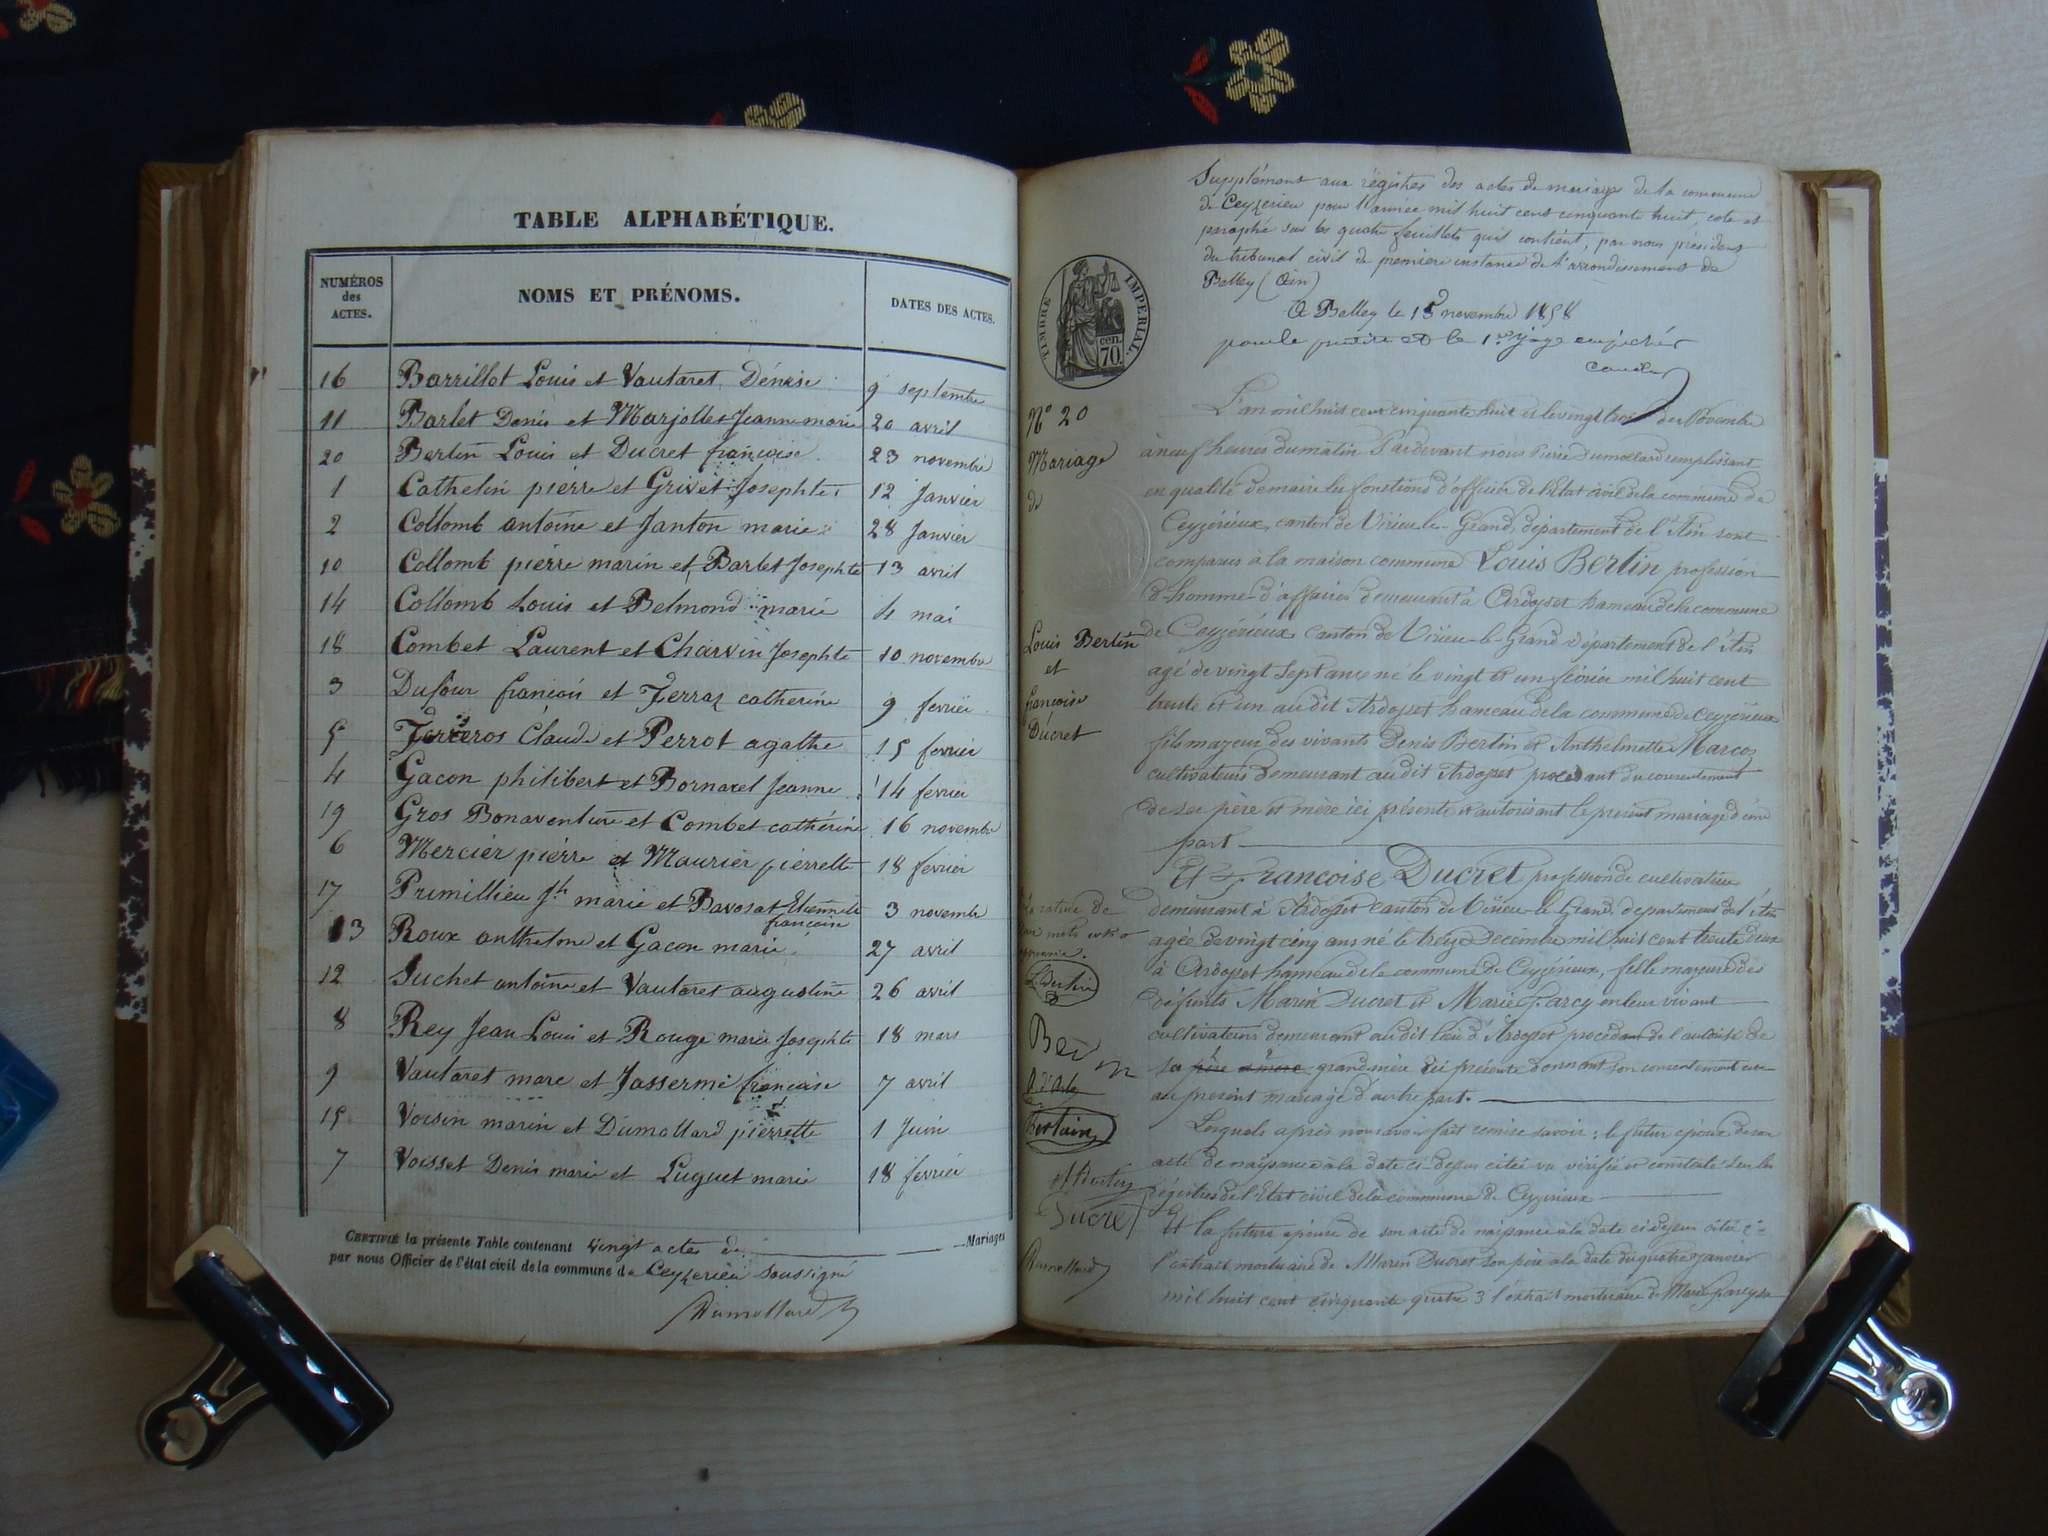 TABLE ALPHABÉTIQUE.
NUMÉROS des ACTES. NOMS ET PRÉNOMS. DATES DES ACTES.
16 Barrillot Louis et Vautaret Dénise 9 septembre
11 Barlet Denis et Marjollet Jeanne marie 20 avril
20 Bertin Louis et Ducret françoise 23 novembre
1 Cathelin pierre et Grivet Josephte 12 Janvier
2 Collomb antoine et Janton marie 28 Janvier
10 Collomb pierre marin et Barlet Josephte 13 avril
14 Collomb Louis et Belmond marie 4 mai
18 Combet Laurent et Charvin Josephte 10 novembre
3 Dufour françois et Ferraz catherine 9 fevrier
5 Claude et Perrot agathe 15 fevrier
4 Gacon philibert et Bornarel Jeanne 14 fevrier
19 Gros Bonaventure et Combet catherine 16 novembre
6 Mercier pierre et Maurier pierrette 18 fevrier
17 Primillieu Jh marie et Bavosat Etiennette françoise 3 novembre
13 Roux anthelme et Gacon marie 27 avril
12 Suchet antoine et Vautaret augustine 26 avril
8 Rey Jean Louis et Rouge marie Josephte 18 mars
9 Vautaret marc et Jassermé françoise 7 avril
15 Voisin marin et Dumollard pierrette 1 Juin
7 Voisset Denis marie et Luguet marie 18 fevrier
CERTIFIÉ la présente Table contenant vingt actes de Mariages
par nous Officier de l'état civil de la commune de Ceyzerieu soussigné
Dumollard
Supplément aux régistres des actes de mariage de la commune
de Ceyzerieu pour l'année mil huit cent cinquante huit, coté et
paraphé sur les quatre feuillets qu'il contient, par nous président
du tribunal civil de premiere instance de l'arrondissement de
Belley (Ain)
A Belley le 15 novembre 1858
pour le et le 1er juge empêchés
TIMBRE IMPÉRIAL.
cen. 70.
N° 20
Mariage
de
Louis Bertin
et
françoise
Ducret
L'an mil huit cent cinquante huit et le vingt trois de Novembre
à neuf heures du matin Pardevant nous Pierre Dumollard remplissant
en qualité de maire les fonctions d'officier de l'Etat civil de la commune de
Ceyzérieux, canton de Virieu-le-Grand, département de l'Ain sont
comparus à la maison commune Louis Bertin profession
d'homme d'affaires demeurant à Ardosset hameau de la commune
de Ceyzérieux canton de Virieu-le-Grand département de l'Ain
agé de vingt sept ans né le vingt et un février mil huit cent
trente et un au dit Ardosset hameau de la commune de Ceyzérieux
fils majeur des vivants Denis Bertin et Anthelmette Marcoz
cultivateurs demeurant au dit Ardosset procédant du consentement
de ses père et mère ici présents et autorisant le présent mariage d'une
part
Et Françoise Ducret profession de cultivatrice
demeurant à Ardosset canton de Virieu-le-Grand, département de l'Ain
agée de vingt cinq ans né le treize Décembre mil huit cent trente deux
à Ardosset hameau de la commune de Ceyzérieux, fille majeure des
défunts Marin Ducret et Marie Garcy en leur vivant
cultivateurs demeurant au dit lieu d'Ardosset procédant de l'autorité de
sa père et mère grand mère ici présente donnant son consentement
au présent mariage d'autre part.
Lesquels après nous avoir fait remise savoir: le futur époux de son
acte de naissance à la date ci-dessus citée vu vérifié et constaté sur les
régistres de l'Etat civil de la commune de Ceyzérieux
Et la future épouse de son acte de naissance à la date ci-dessus citée 2°
l'extrait mortuaire de Marin Ducret son père à la date du quatre janvier
mil huit cent cinquante quatre 3° l'extrait mortuaire de Marie Garcy sa
La rature de
mots
L. Bertin
Ducret
Dumollard